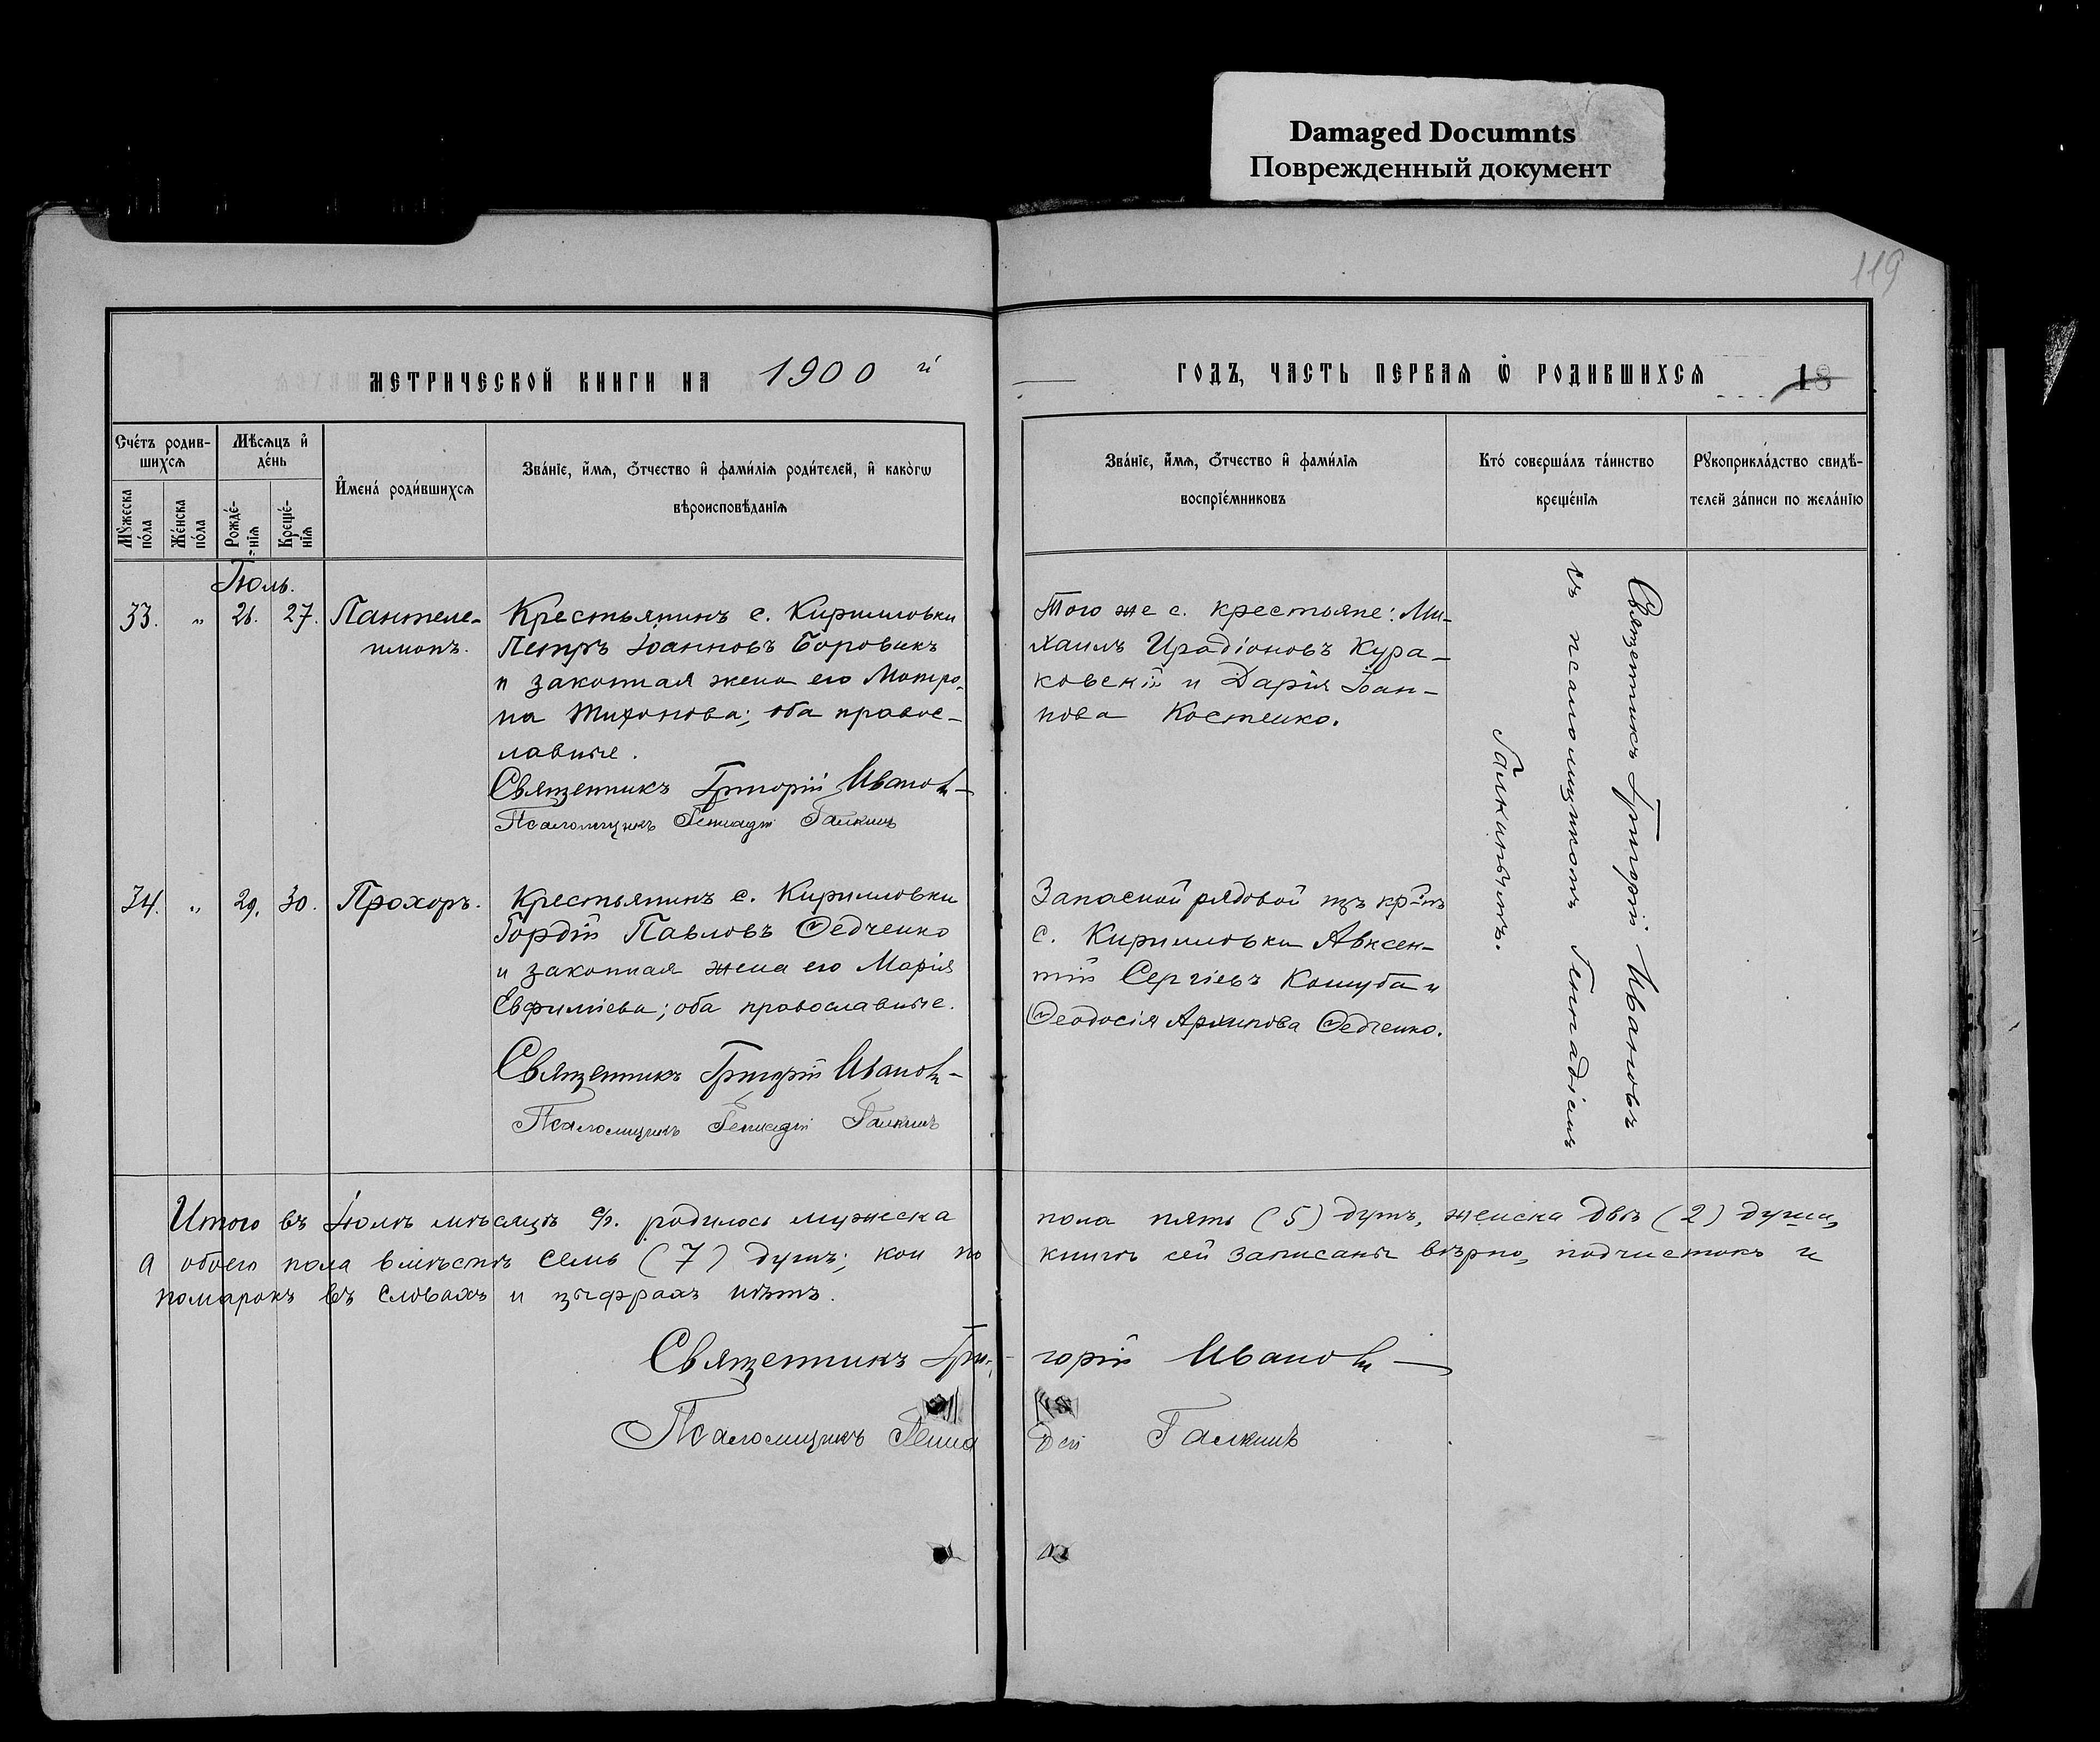 Damaged Documnts
Поврежденный документ
119
МЕТРИЧЕСКОЙ КНИГИ НА 1900 й
ГОДЪ, ЧАСТЬ ПЕРВАЯ Ѿ РОДИВШИХСѦ
18
Сче́тъ родив-
шихсѧ
Мѣсѧцъ и҆
де́нь
Мꙋжеска по́ла
Же́нска по́ла
Рожде́-
нїѧ
Креще́-
нїѧ
И҆мена̀ роди́вшихсѧ
Зва́нїе, и҆́мѧ, ѻ҆́тчество и҆ фами́лїѧ роди́телей, и҆ како́гѡ
вѣроисповѣ́данїѧ
Зва́нїе, и҆́мѧ, ѻ҆́тчество и҆ фами́лїѧ
воспрїе́мниковъ
Кто̀ соверша́лъ та́инство
креще́нїѧ
Рꙋкоприкла́дство свидѣ́-
телей за́писи по жела́нїю
Іюль.
33. " 26. 27. Пантеле-
имонъ.
Крестьянинъ с. Кирилловки
Петръ Іоанновъ Боровикъ
и законная жена его Матро-
на Тихонова; оба правос-
лавные.
Священникъ Григорій Ивановъ
Псаломщикъ Геннадій Галкинъ
Того же с. крестьяне: Ми-
хаилъ Иродіоновъ Кура-
ковскій и Дарія Іоан-
нова Костенко.
Священникъ Григорій Ивановъ
съ псаломщикомъ Геннадіемъ
Галкинымъ.
34. " 29. 30. Прохоръ.
Крестьянинъ с. Кирилловки
Гордій Павловъ Ѳедченко
и законная жена его Марія
Евфиміева; оба православные.
Священникъ Григорій Ивановъ
Псаломщикъ Геннадій Галкинъ
Запасной рядовой изъ кр-нъ
с. Кирилловки Авксен-
тій Сергіевъ Кошуба и
Ѳеодосія Архипова Ѳедченко.
Итого въ Іюлѣ мѣсяцѣ с/г. родилось мужеска пола пять (5) душъ, женска двѣ (2) души,
а обоего пола вмѣстѣ семь (7) душъ; кои по книгѣ сей записаны вѣрно, подчистокъ и
помарокъ въ словахъ и цыфрахъ нѣтъ.
Священникъ Григорій Ивановъ
Псаломщикъ Геннадій Галкинъ